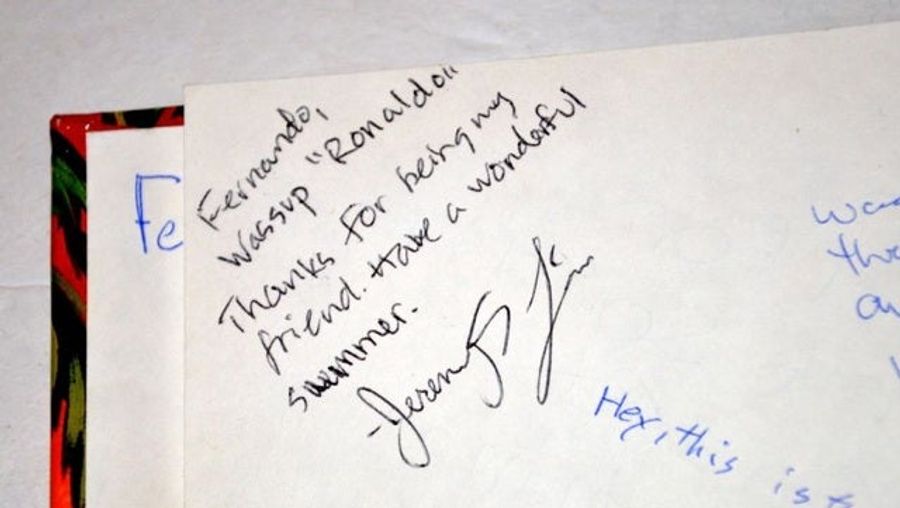 Fernando,
Wassup "Ronaldo"
Thanks for being my
friend. Have a wonderful
summer.
-Jeremy Lin
Fe
Hey, this is